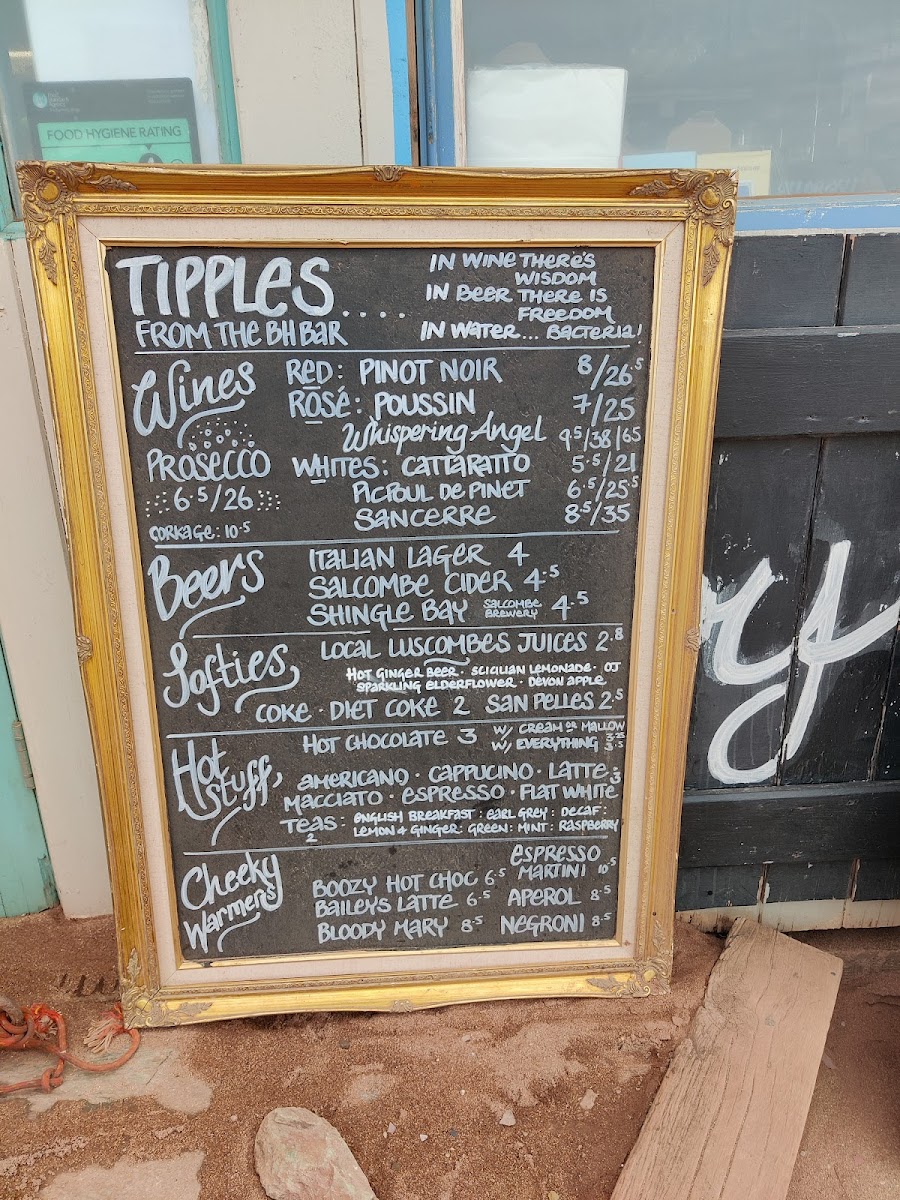 FOOD HYGIENE RATING
TIPPLES....
FROM THE BH BAR
IN WINE THERE'S
WISDOM
IN BEER THERE IS
FREEDOM
IN WATER... BACTERIA!
Wines
RED: PINOT NOIR 8/26.5
ROSÉ: POUSSIN 7/25
Whispering Angel 9.5/38/65
PROSECCO
6.5/26
CORKAGE: 10.5
WHITES: CATTARATTO 5.5/21
PICPOUL DE PINET 6.5/25.5
SANCERRE 8.5/35
Beers
ITALIAN LAGER 4
SALCOMBE CIDER 4.5
SHINGLE BAY SALCOMBE BREWERY 4.5
Softies
LOCAL LUSCOMBES JUICES 2.8
HOT GINGER BEER · SCICILIAN LEMONADE · OJ
SPARKLING ELDERFLOWER · DEVON APPLE
COKE · DIET COKE 2 SAN PELLES 2.5
Hot Stuff
HOT CHOCOLATE 3
W/ CREAM OR MALLOW 3.25
W/ EVERYTHING 3.5
AMERICANO · CAPPUCINO · LATTE · 3
MACCIATO · ESPRESSO · FLAT WHITE
TEAS: 2
ENGLISH BREAKFAST : EARL GREY : DECAF :
LEMON & GINGER : GREEN : MINT : RASPBERRY
Cheeky Warmers
BOOZY HOT CHOC 6.5
BAILEYS LATTE 6.5
BLOODY MARY 8.5
ESPRESSO
MARTINI 10.5
APEROL 8.5
NEGRONI 8.5